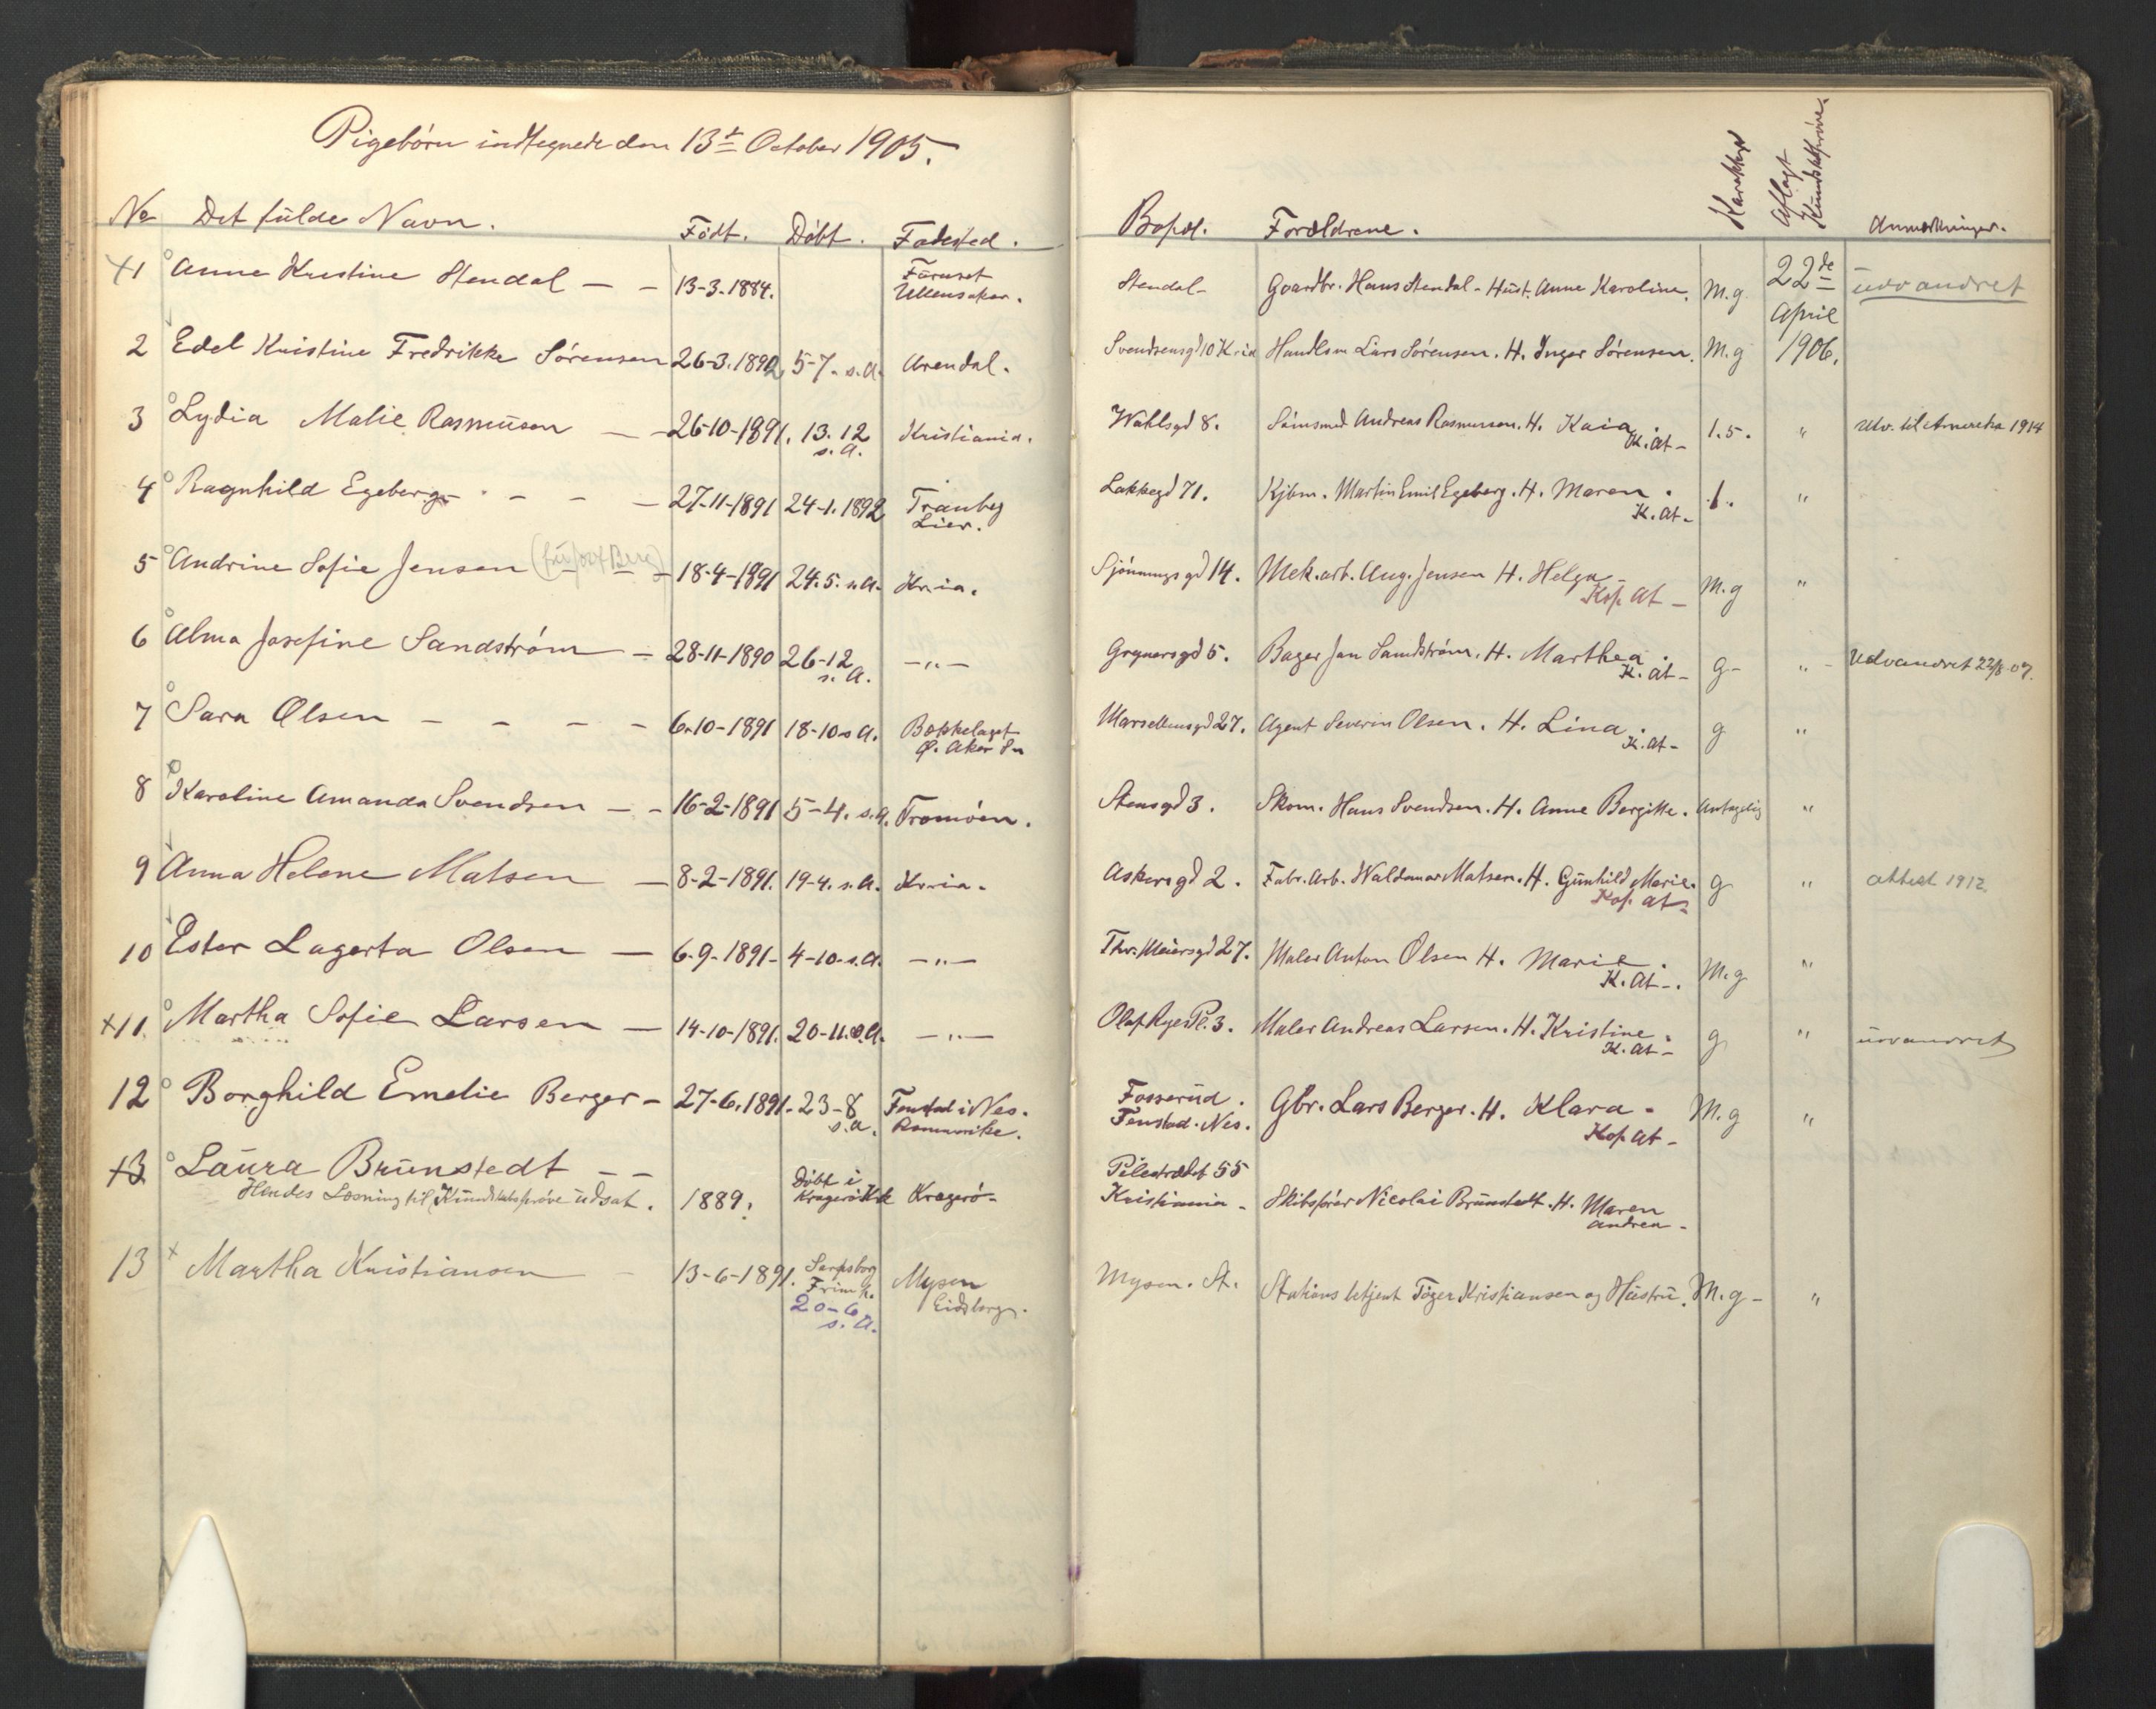 Pigebörn indtegnede den 13de October 1905.
No Det fulde Navn. Födt. Döbt. Födested. Bopæl. Forældrene. Karakter Aflagt Kundskabsprøve. Anmærkninger.
+1 Anne Kristine Stendal — — 13-3.1884. Füruset Ullensaker. Stendal - Gaardbr. Hans Stendal - Hust. Anne Karoline. M.g 22de April 1906. udvandret
2 Edel Kristine Fredrikke Sörensen 26-3.1892 5-7. s.A. Arendal. Svendsensgd 10 Kria Handlsm Lars Sörensen. H. Inger Sörensen. M.g
3 Lydia Malie Rasmüsen — 26-10-1891. 13.12 s.A. Kristiania. Wahlsgd 8. Andreas Rasmussen. H. Kaia. K. At - 1.5. " Udv. til Amerika 1914
4 Ragnhild Egeberg - - - — 27-11-1891 24-1.1892 Tranby Lier. Lakkegd 71. Kjbm. Martin Emil Egeberg. H. Maren. K. At - 1. "
5 Andrine Sofie Jensen 18-4-1891 24.5. s.A. Kr.ia. 14. Mek. arb. Aug. Jensen H. Helga - Kop. At - M.g "
6 Alma Josefine Sandström — 28-11-1890 26-12 s.A. —"— Grynersgd 5. Bager Jan Sandström. H. Marthea. K. At - g - " - Udvandret 22/8-07.
7 Sara Olsen - - - - 6-10-1891 18-10 s A. Bækkelaget Ø. Aker Sn Marsellensgd 27. Agent Severin Olsen. H. Lina. K. At - g "
8 Karoline Amanda Svendsen — - 16-2-1891 5-4. s.A. Tromöen. Stensgd 3. Skom. Hans Svendsen. H. Anne Bergitte. Antagelig "
9 Anna Helene Matsen — 8-2-1891. 19-4. s.A. Kr.ia. Askersgd 2. Fabr. Arb. Waldemar Matsen. H. Gunhild Marie. Kop. At - g " attest 1912.
10 Ester Lagerta Olsen — 6-9-1891- 4-10-s.A. —"— Thv. Meiersgd 27. Maler Anton Olsen H. Marie. K. At -. M.g "
+11. Martha Sofie Larsen — 14-10-1891. 20-11. s.A. —"— Olaf Ryes Pl. 3. Maler Andreas Larsen. H. Kristine. K. At - g " udvandret
12 Borghild Emelie Berger - 27-6.1891- 23-8 s.A. Fenstad i Nes. Romerike. Fosserud. Fenstad. Nes. Gbr. Lars Berger. H. Klara. Kop At - M.g "
13 Laura Brünstedt — — 1889. Döbt i Kragerö Kk Kragerö - Pilestrædet 55 Kristiania - Skibsförer Nicolai Brünstedt. H. Maren Andrea -
Hendes Læsning til Kundskabspröve udsat.
13 + Martha Kristiansen - 13-6-1891. Sarpsborg Frim k. 20-6 s.A. Mysen Eidsberg. Mysen. St. Stationsbetjent Töger Kristiansen og Hustru. M.g - "